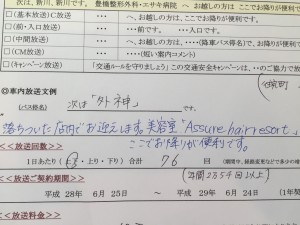 次は、新川、新川です。 豊橋整形外科・エサキ病院 へ お越しの方は、ここでお降りが便利です。
□(基本)CM放送 ・・・へ、お越しの方は、ここでお降りが便利です。
□(前・入口)放送 ・・・前です。 ・・・入口です。
□(中間)放送 ・・・へお越しの方は、次の・・・
□(CM放送) (短い案内コメント)
□(キャンペーン放送) 「交通ルールを守りましょう」この交通安全キャンペーンは、・・・のご協力で
◎車内放送文例
(バス停名) 次は「外神」
落ちついた店内でお迎えします。美容室「Assure hair resort」
ここでお降りが便利です。
<<放送回数>>
1日あたり( ・上り・下り) 合計 76 回
(年間 以上)
<<放送ご契約期間>>
平成 28年 6月 25日 ～ 平成 29年 6月 24日 (1年契
<<放送料金>>